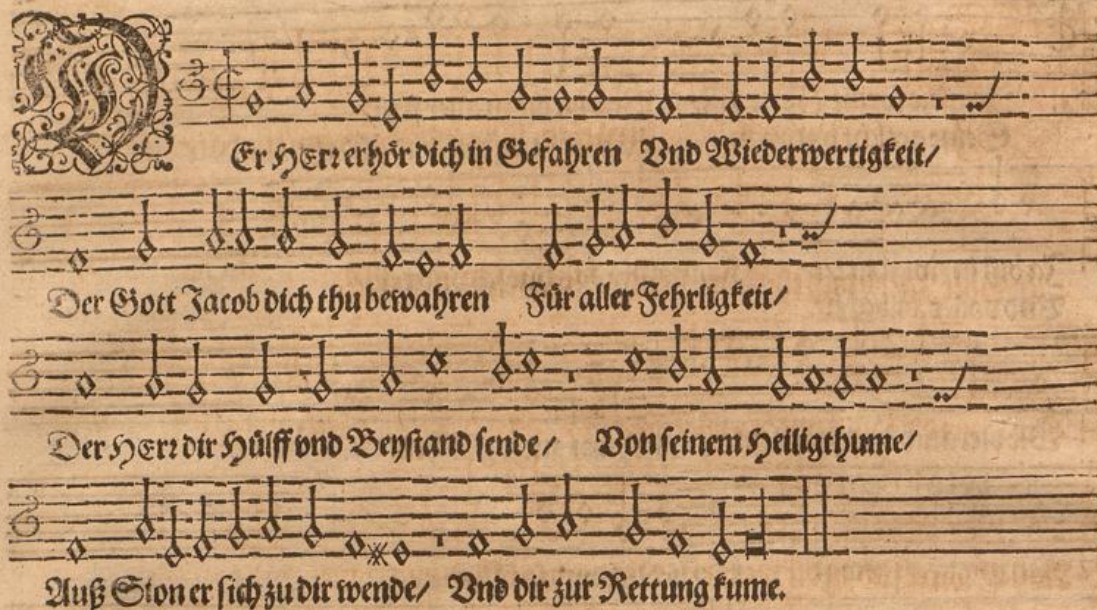 DEr HErr erhör dich in Gefahren Vnd Wiederwertigkeit/
Der Gott Jacob dich thu bewahren Für aller Fehrligkeit/
Der HErr dir Hülff vnd Beystand sende/ Von seinem Heiligthume/
Auß Sion er sich zu dir wende/ Vnd dir zur Rettung kume.